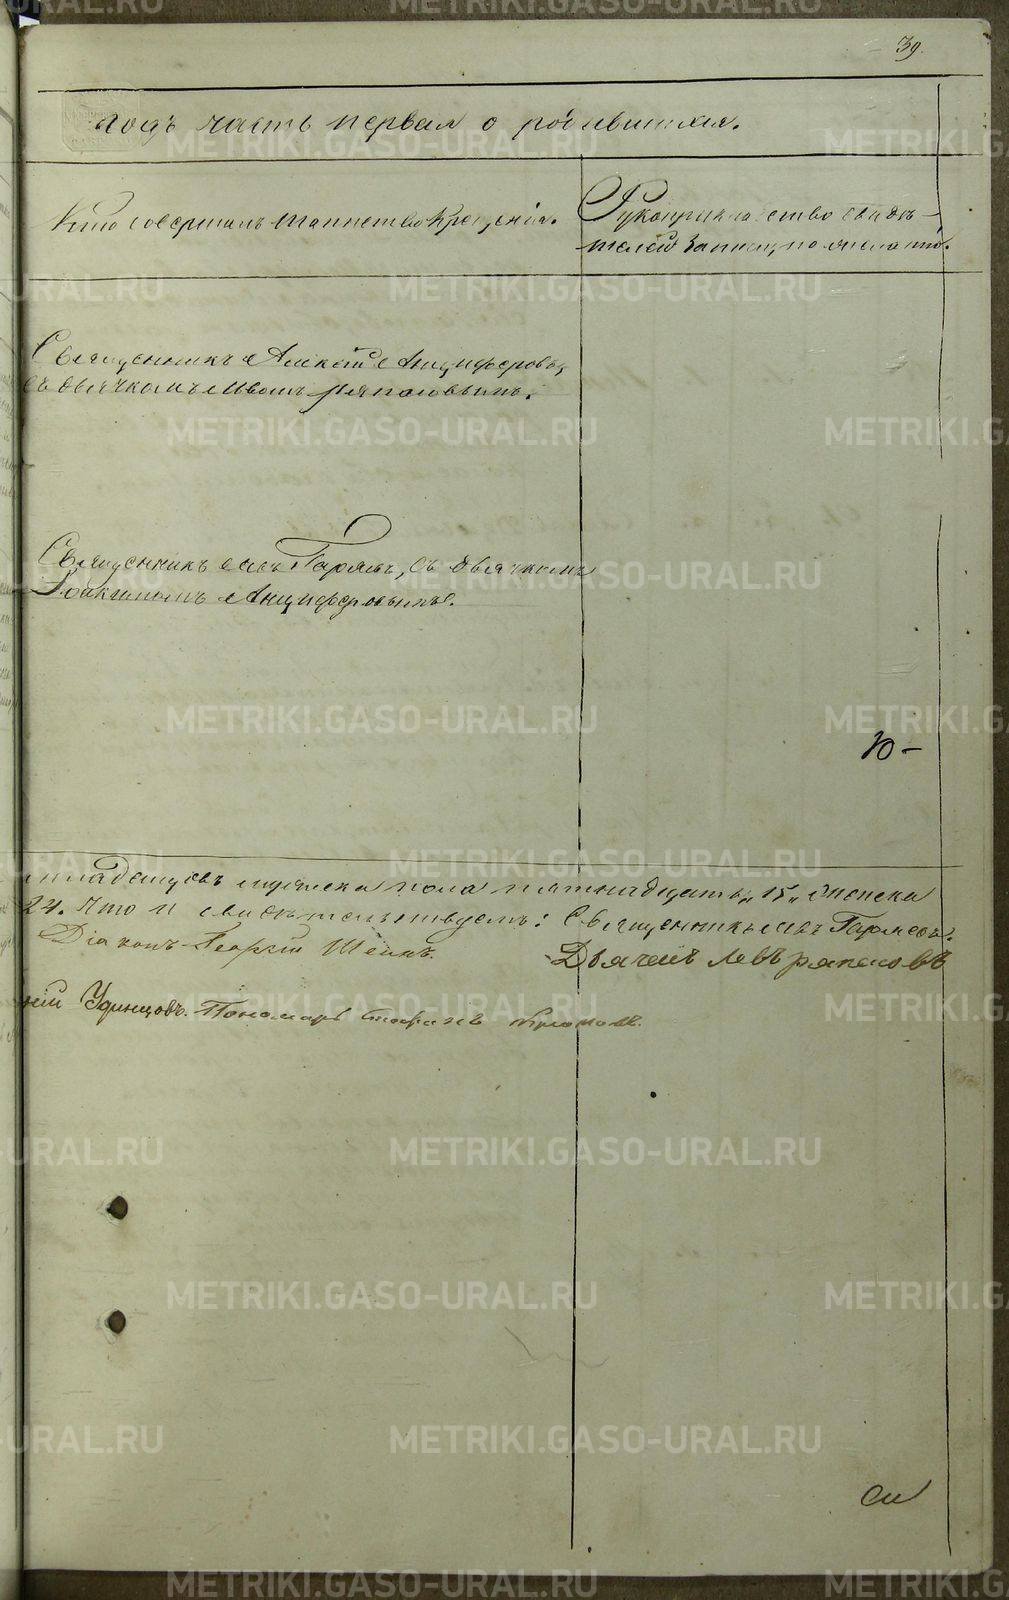 39.
годъ часть первая о родившихся.
Кто совершалъ таинство Крещенія.
Рукоприкладство свидѣ-
телей записи, по желанію.
Священникъ Алексій Анциферовъ,
съ дьячкомъ Львомъ Ряпосовымъ.
Священникъ Левъ Гаряевъ, съ дьячкомъ
Іоакимомъ Анциферовымъ.
Ю-
младенцовъ мужеска пола пятнадцать „15„ женска
24. Что и свидѣтельствуемъ: Священникъ Левъ Гаряевъ.
Діаконъ Георгій Шеинъ.
Дьячекъ Левъ Ряпосовъ
ній Удинцовъ. Пономарь
си
METRIKI.GASO-URAL.RU